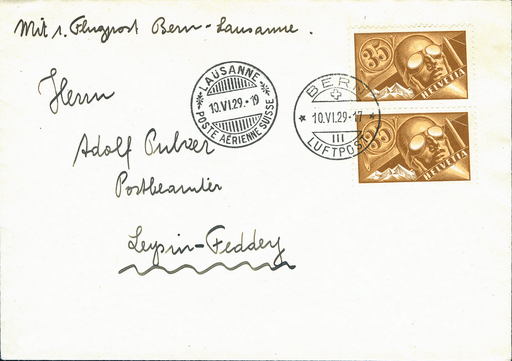 Mit 1. Flugpost Bern-Lausanne.
35
HELVETIA
LAUSANNE
10.VI.29.-19
POSTE AÉRIENNE SUISSE
BERN
10.VI.29-17
III
LUFTPOST
35
HELVETIA
Herrn
Adolf
Postbeamter
Leysin-Feddey